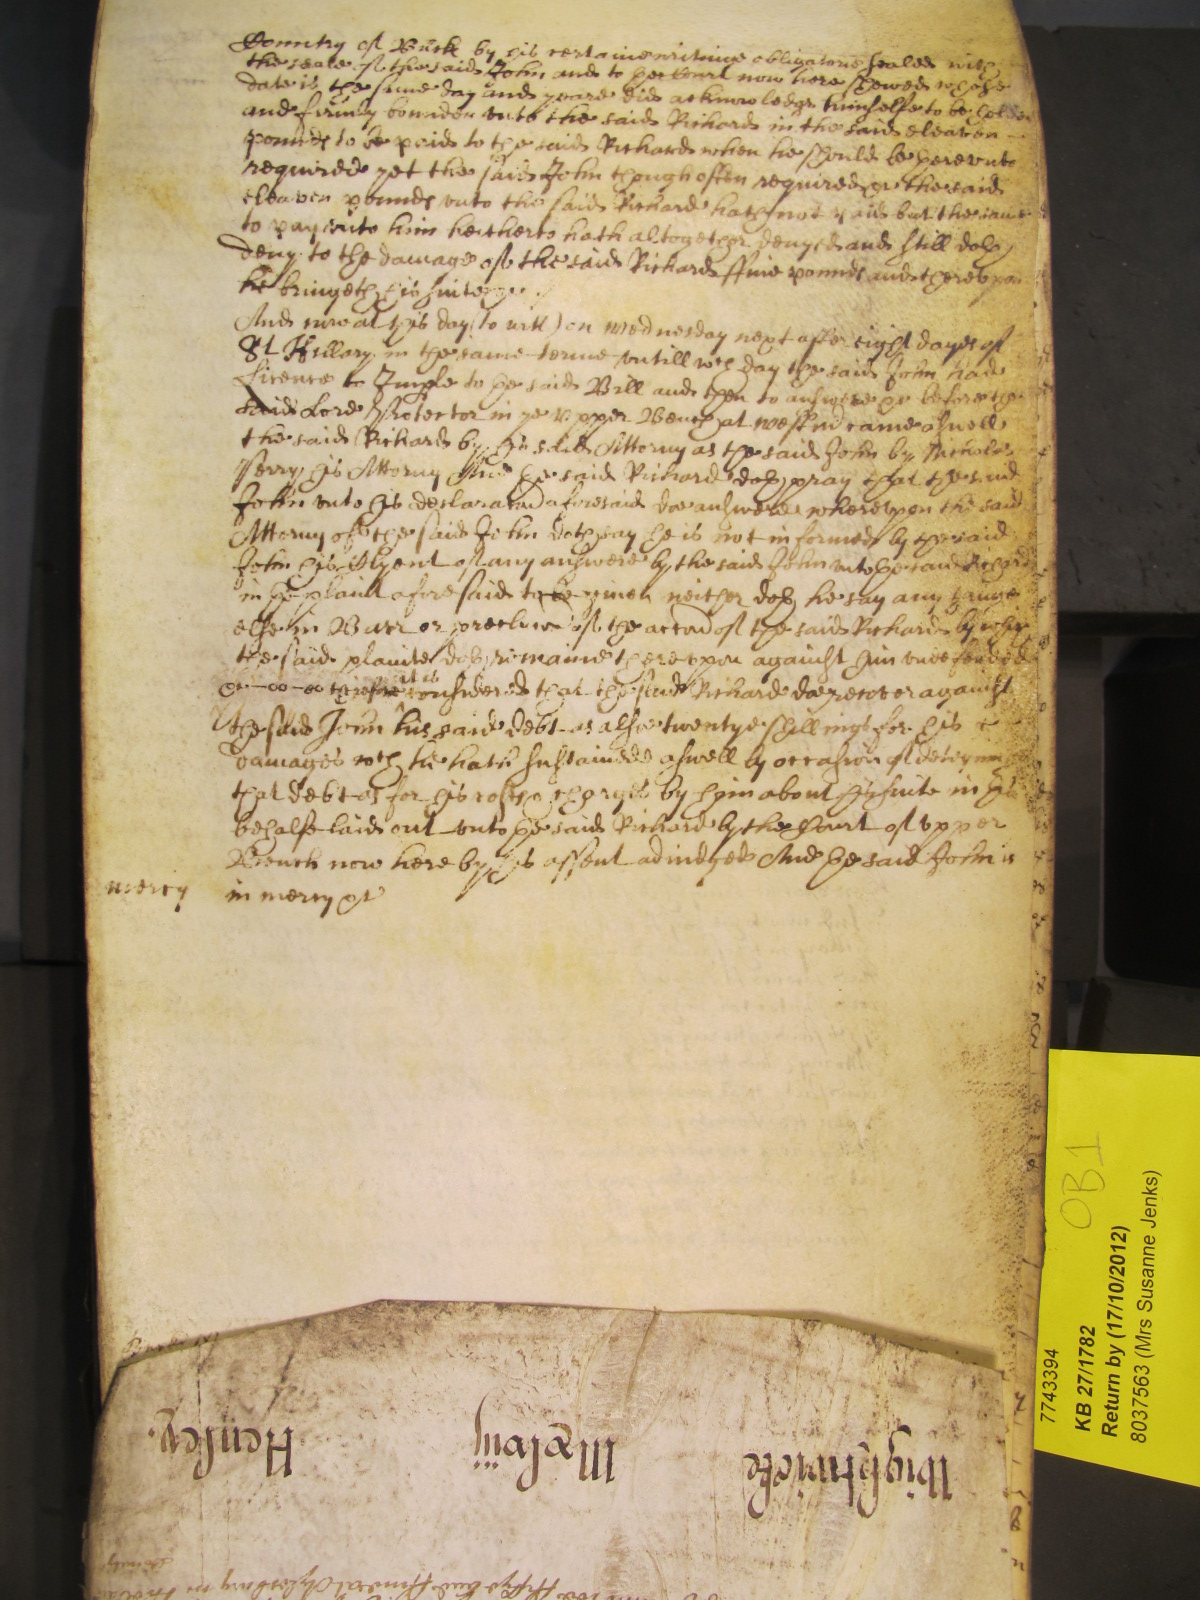 Country of Buck by his certaine writinge obligatorie sealed with
the seale of the said John and to the Court now here shewed whose
date is the same day and yeare did acknowledge himselfe to be holden
and firmly bounden unto the said Richard in the said eleaven
pounds to be paid to the said Richard when he should be thereunto
required yet the said John though often required &c the said
eleaven pounds unto the said Richard hath not paid but the same
to pay unto him hitherto hath altogether denyed and still doth
deny to the damage of the said Richard ffive pounds and thereupon
he bringeth his suite &c
And now at this day (to witt) on Wednesday next after eight dayes of
St Hillary in the same terme untill wch day the said John had
Licence to Imple to the said Bill and then to answere &c before the
said Lord Protector in ye Upper Bench at Westm came aswell
the said Richard by his said Attorny as the said John by Nicholas
his Attorny And the said Richard doth pray that the said
John unto his declaracon aforesaid doe answere whereupon the said
Attorny of the said John doth say he is not informed by the said
John his Clyent of any answere by the said John unto the said Richard
in the plaint aforesaid to be given neither doth he say any thinge
else in Barr or preclusion of the accon of the said Richard by which
the said plainte doth remaine thereupon against him undefended
&c therefore it is considered that the said Richard doe recover against
the said John his said debt as also twentye shillings for his
damages wch he hath susteined aswell by occasion of deteyning
that debt as for his costs & charges by him about his suite in his
behalfe laid out unto the said Richard by the Court of Upper
Bench now here by his assent adiudged And the said John is
mercy in mercy &c
Wightwicke
Henley
7743394
KB 27/1782
Return by (17/10/2012)
8037563 (Mrs Susanne Jenks)
OB1